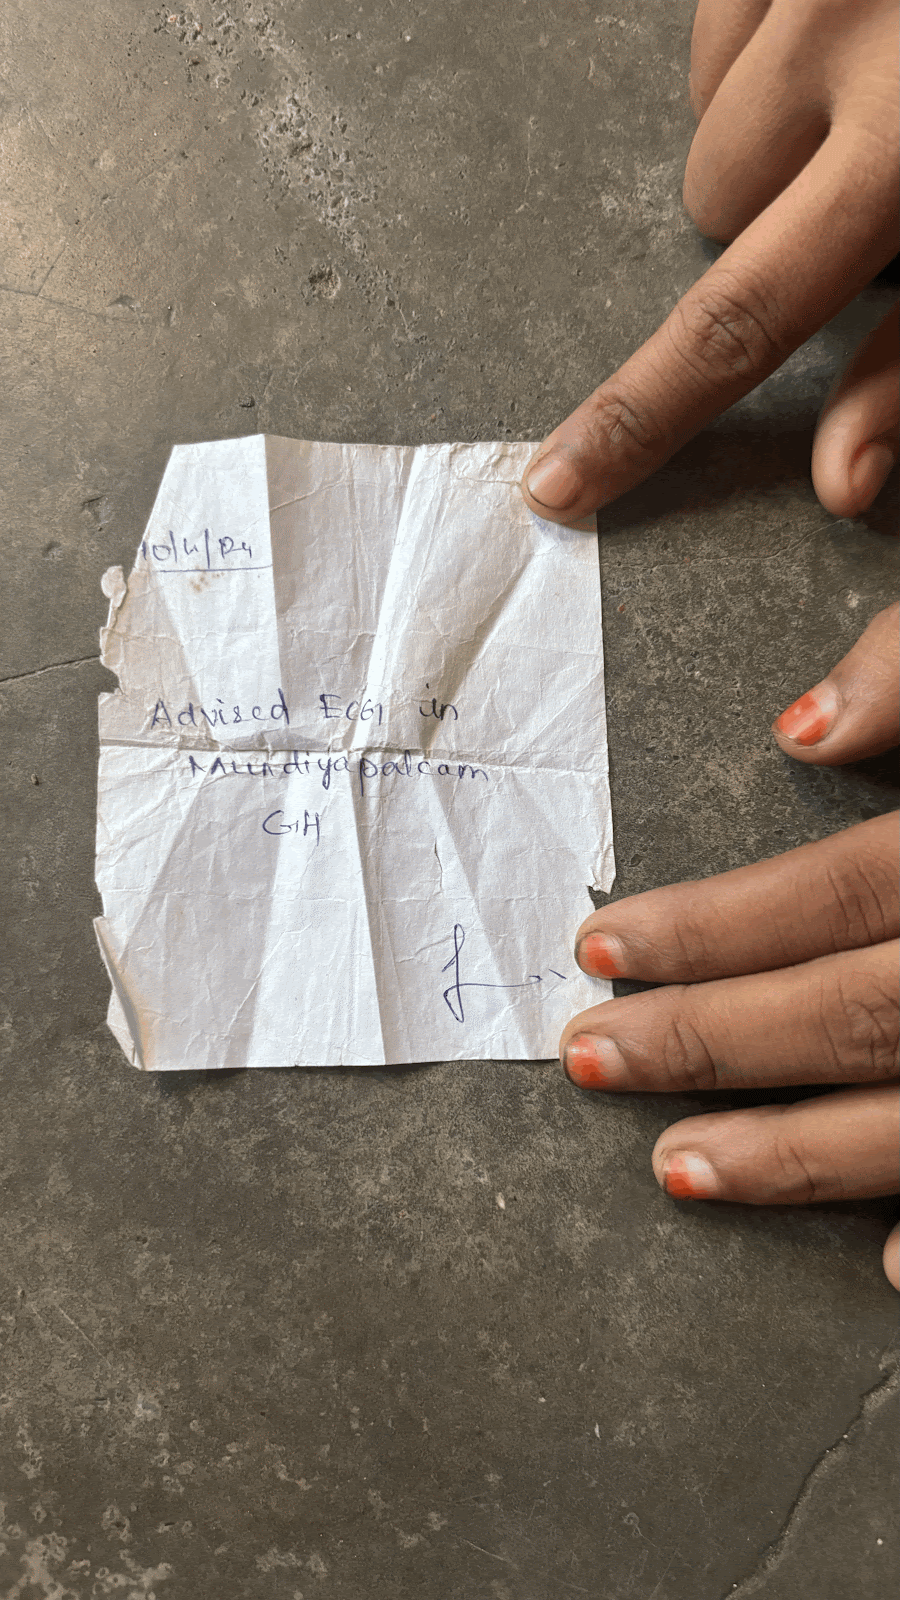 10/4/24
Advised ECG in
Mundiyapakam
GH